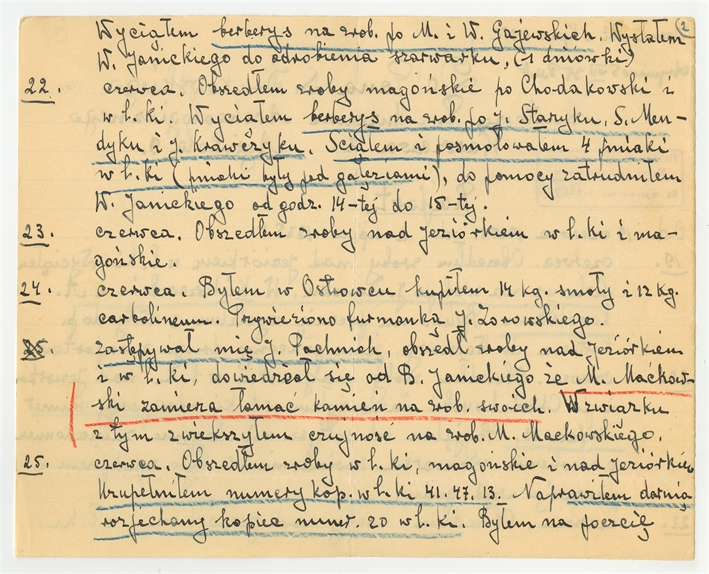 2
Wyciąłem berberys na zrob. po M. i W. Gajewskich. Wysłałem
W. Janickiego do odrobienia szarwarku, (-1 dniówki)
22. czerwca. Obszedłem zroby magońskie po Chodakowski i
w l. ki Wyciąłem berberys na zrob. po J. Staryku, S. Men-
dyku i J. Krawczyku. Sciąłem i posmołowałem 4 pniaki
w l. ki (pniaki były pod gałęziami), do pomocy zatrudniłem
W. Janickiego od godz. 14-tej do 15-tej.
23. czerwca. Obszedłem zroby nad Jeziórkiem w l. ki i ma-
gońskie.
24. czerwca. Byłem w Ostrowcu kupiłem 14 kg. smoły i 12 kg.
carbolineum. Przywieziono furmanką J. Żorowskiego.
25. zastępywał mię J. Pachniak, obszedł zroby nad Jeziórkiem
i w l. ki, dowiedział się od B. Janickiego że M. Maćkow-
ski zamierza łamać kamień na zrob. swoich. W związku
z tym zwiększyłem czujność na zrob. M. Maćkowskiego.
25. czerwca. Obszedłem zroby w l. ki, magońskie i nad Jeziórkiem
Uzupełniłem numery kop. w l. ki 41. 47. 13. Naprawiłem darnią
rozjechany kopiec numer. 20 w l. ki. Byłem na poczcie